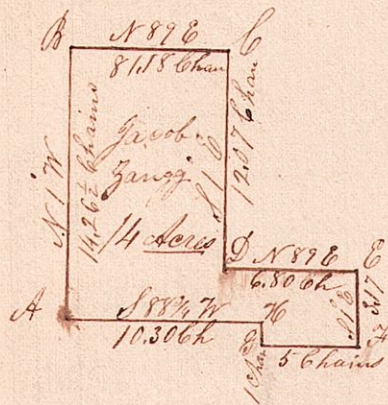 B N 89 E C
8.18 Chan
N 1 W
14.26½ Chains
Jacob
Zangg
14 Acres
S 1 E
12.07 Chan
D N 89 E E
6.80 Ch
S 1 E
3.17
F
A S 88¾ W H
10.30 Ch
G
1 Chan
5 Chains